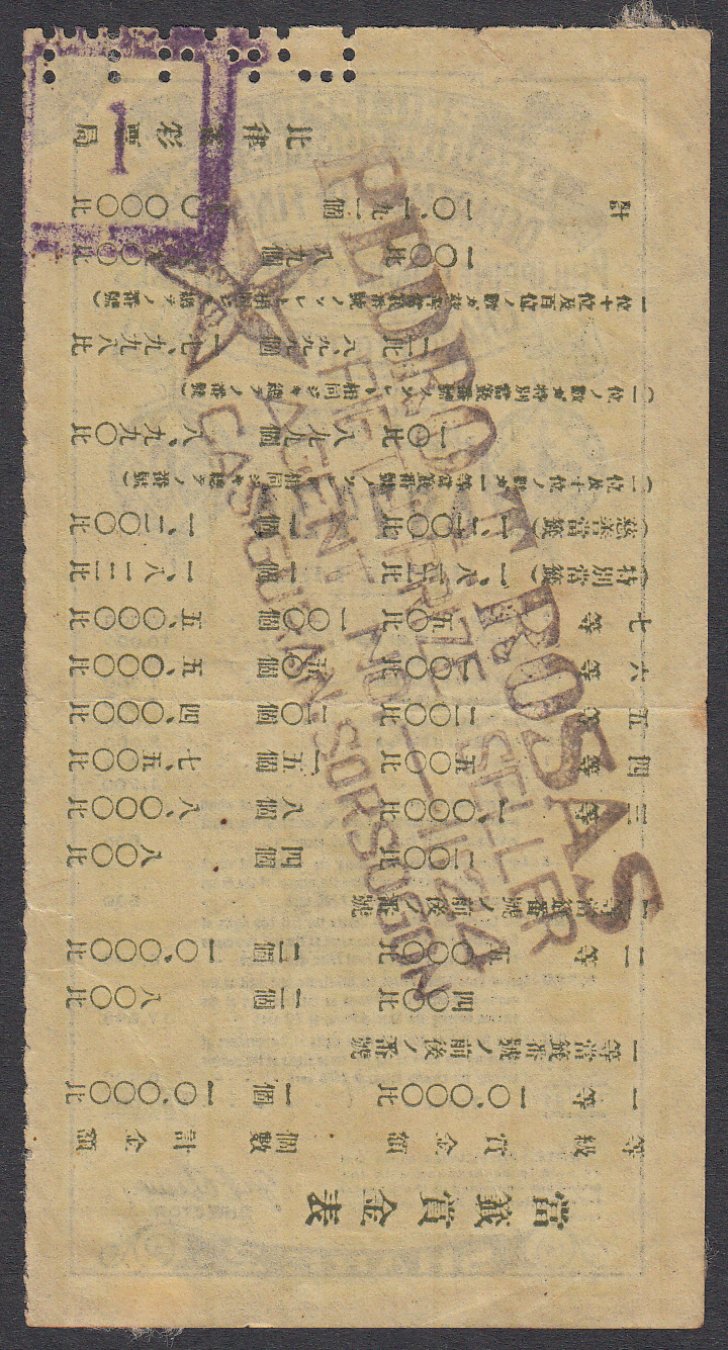 當籤賞金表
等級 賞金額 個數 計金額
一等 一〇.〇〇〇比 一個 一〇.〇〇〇比
一等當籤番號ノ前後ノ番號
四〇〇比 二個 八〇〇比
二等 五.〇〇〇比 二個 一〇.〇〇〇比
二等當籤番號ノ前後ノ番號
二〇〇比 四個 八〇〇比
三等 一.〇〇〇比 八個 八.〇〇〇比
四等 五〇〇比 一五個 七.五〇〇比
五等 二〇〇比 二〇個 四.〇〇〇比
六等 一〇〇比 五〇個 五.〇〇〇比
七等 五〇比 一〇〇個 五.〇〇〇比
(特別當籤) 一.八二二比 一個 一.八二二比
(慈善當籤) 一.二〇〇比 一個 一.二〇〇比
(一位及十位ノ數ガ一等當籤番號ノソレト相同ジキ總テノ番號)
一〇比 八九九個 八.九九〇比
(一位ノ數ガ特別當籤番號ノソレト相同ジキ總テノ番號)
二比 八.九九九個 一七.九九八比
一〇〇比 八九個
計 一〇.一九二個 〇.〇〇〇比
比律賓彩票局
1
PEDRO T. ROSAS
PRIZE SELLER
AGENT NO. 1124
CASIGURAN, SORSOGON